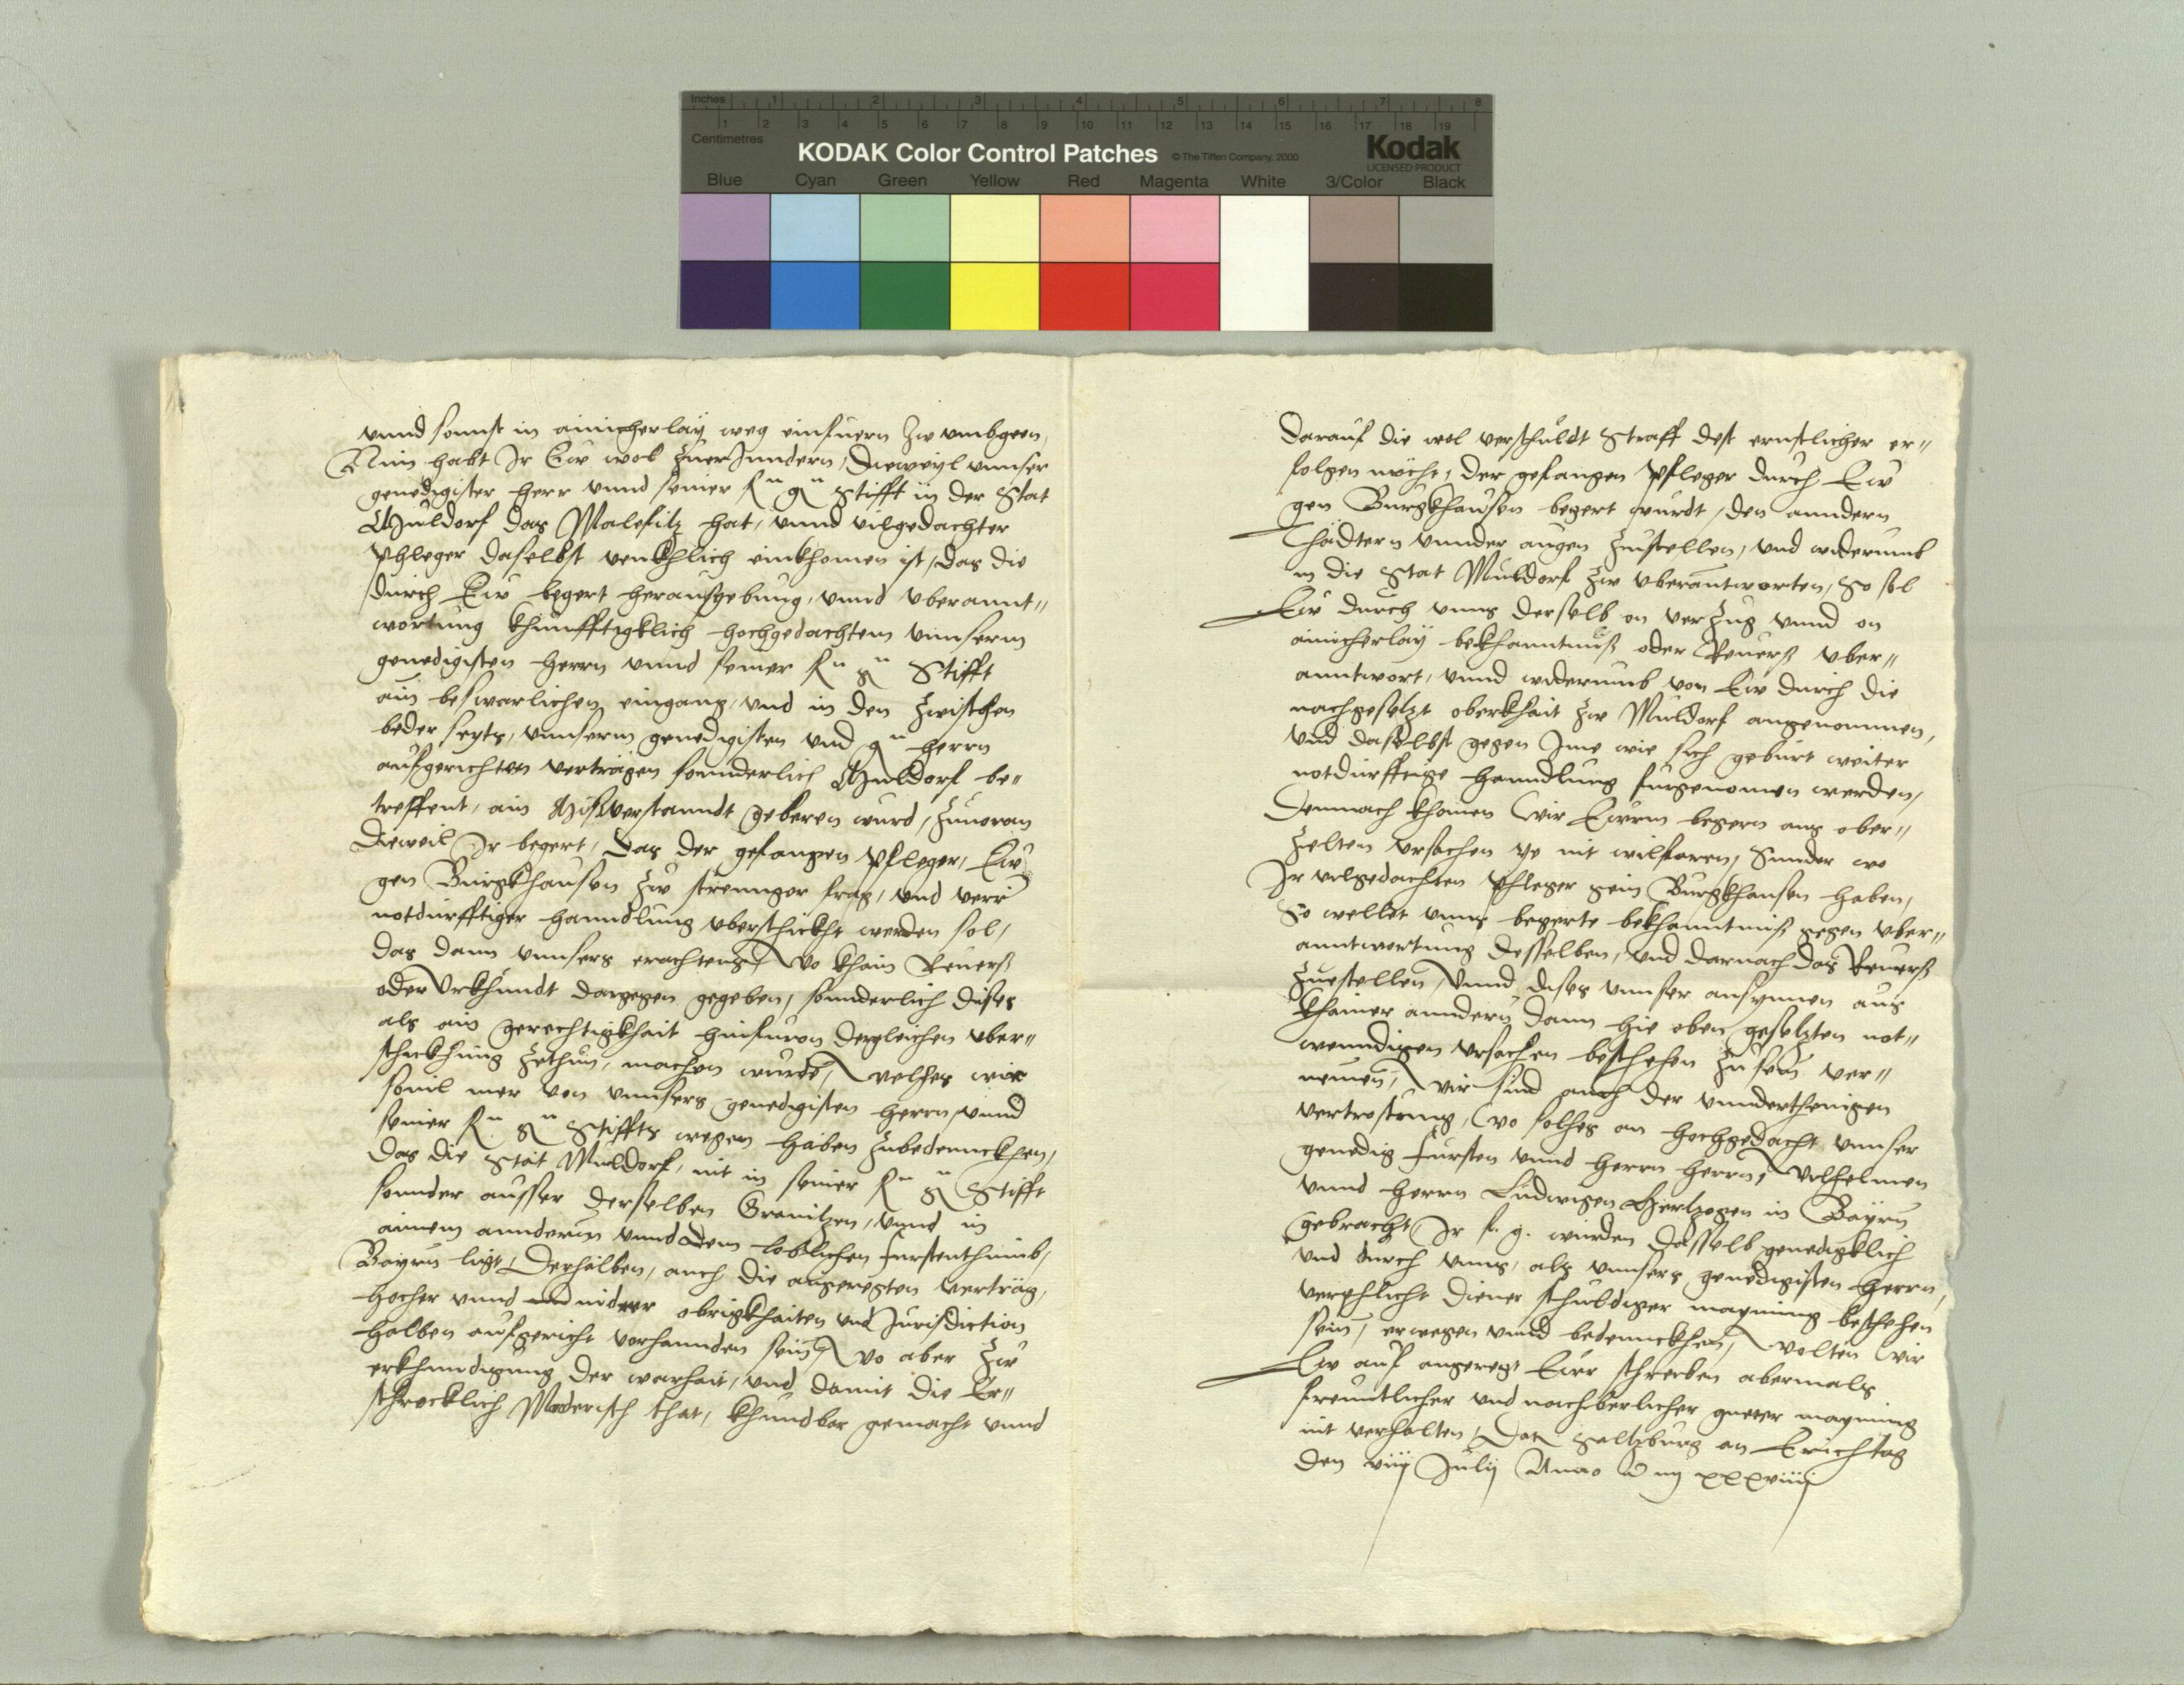 Inches 1 2 3 4 5 6 7 8
Centimetres 1 2 3 4 5 6 7 8 9 10 11 12 13 14 15 16 17 18 19
KODAK Color Control Patches © The Tiffen Company, 2000 Kodak
LICENSED PRODUCT
Blue Cyan Green Yellow Red Magenta White 3/Color Black
vnnd sonnst in ainicherlay weg einfuern zw vmbgeen,
Nun habt Ir Euw wol zuerInndern, dieweyl vnnser
genedigister herr vnnd seiner f n g n Stifft in der Stat
Muldorf das Malefitz hat, vnnd vilgedachter
Phleger daselbst venkhlich einkhomen ist, das die
durch Euw begert herausgebung, vnnd vberannt-
wortung khunfftigklich hochgedachtem vnnserm
genedigisten herrn vnnd seiner f n g n Stifft
ain beswarlichen eingang, vnd in den zwischen
beder seyts, vnnserm genedigisten vnd g n herrn
aufgerichten verträgen sonnderlich Muldorf be-
treffent, ain Mißverstanndt geberen wurd, zuuoran
dieweil Ir begert, das der gefanngen Pfleger, Euw
gen Burgkhausen zw strennger frag, vnd verr
notdurfftiger hanndlung vberschickht werden sol,
das dann vnnsers erachtens, wo khain Reuerß
oder Vrkhundt dargegen gegeben, sonnderlich dises
als ain gerechtigkhait hinfuron dergleichen vber-
schickhung zethun, machen wurde, welhes wir
souil mer von vnnsers genedigisten herrn, vnnd
seiner f n g n Stiffts wegen haben zubedennckhen,
das die Stat Muldorf, nit in seiner f n g n Stifft
sonnder ausser derselben Granitzen, vnnd in
ainem anndern vnnd dem loblichen furstenthumb,
Bayrn ligt, Derhalben, auch die angeregten verträg,
hocher vnnd nidrer obrigkhaiten vnd Jurisdiction
halben aufgericht vorhannden sein, wo aber zw
erkhundigung der warhait, vnd damit die Er-
schrocklich Moderisch that, khundbar gemacht vnnd
darauf die wol verschuldt Straff dest ernstlicher er-
folgen möcht, der gefangen Pfleger durch Euw
gen Burgkhausen begert wurdt, den anndern
Thädtern vnnder augen zustellen, vnd widerumb
in die Stat Muldorf zw vberantworten, So sol
Euw durch vnns derselb on verzug vnnd on
ainicherlay bekhanntnuß oder Reuerß vber-
anntwort, vnnd widerumb von Euw durch die
nachgesetzt oberkhait zw Muldorf angenommen,
vnd daselbst gegen Ime wie sich geburt weiter
notdurfftige hanndlung furgenomen werden,
Demnach khönen wir Eurm begern aus ober-
zelten vrsachen ye nit wilfaren, Sunder wo
Ir vilgedachten Phleger gein Burgkhausen haben,
So wellet vnns begerte bekhanntnuß gegen vber-
anntwortung desselben, vnd darnach das Reuerß
zuestellen, Vnnd dises vnnser ansynnen aus
khainer anndern dann hie oben gesetzten not-
wenndigen vrsachen beschehen zu sein ver-
nemen, wir sind auch der vnnderthenigen
vertrostung, wo solhes an hochgedacht vnnser
genedig fursten vnnd herrn herrn, Wilhelmen
vnnd herrn Ludwigen Hertzogen in Bayrn
gebracht Ir f. g. wurden dasselb genedigklich
vnd durch vnns, als vnnsers genedigisten herrn,
verphlicht diener schuldiger maynung beschehen
sein, erwegen vnnd bedennckhen, wolten wir
Euw auf angeregt Eur schreiben abermals
freuntlicher vnd nachberlicher gueter maynung
nit verhalten, Dat Saltzburg an Erichtag
den viij Julij Anno d nj xxxviiij